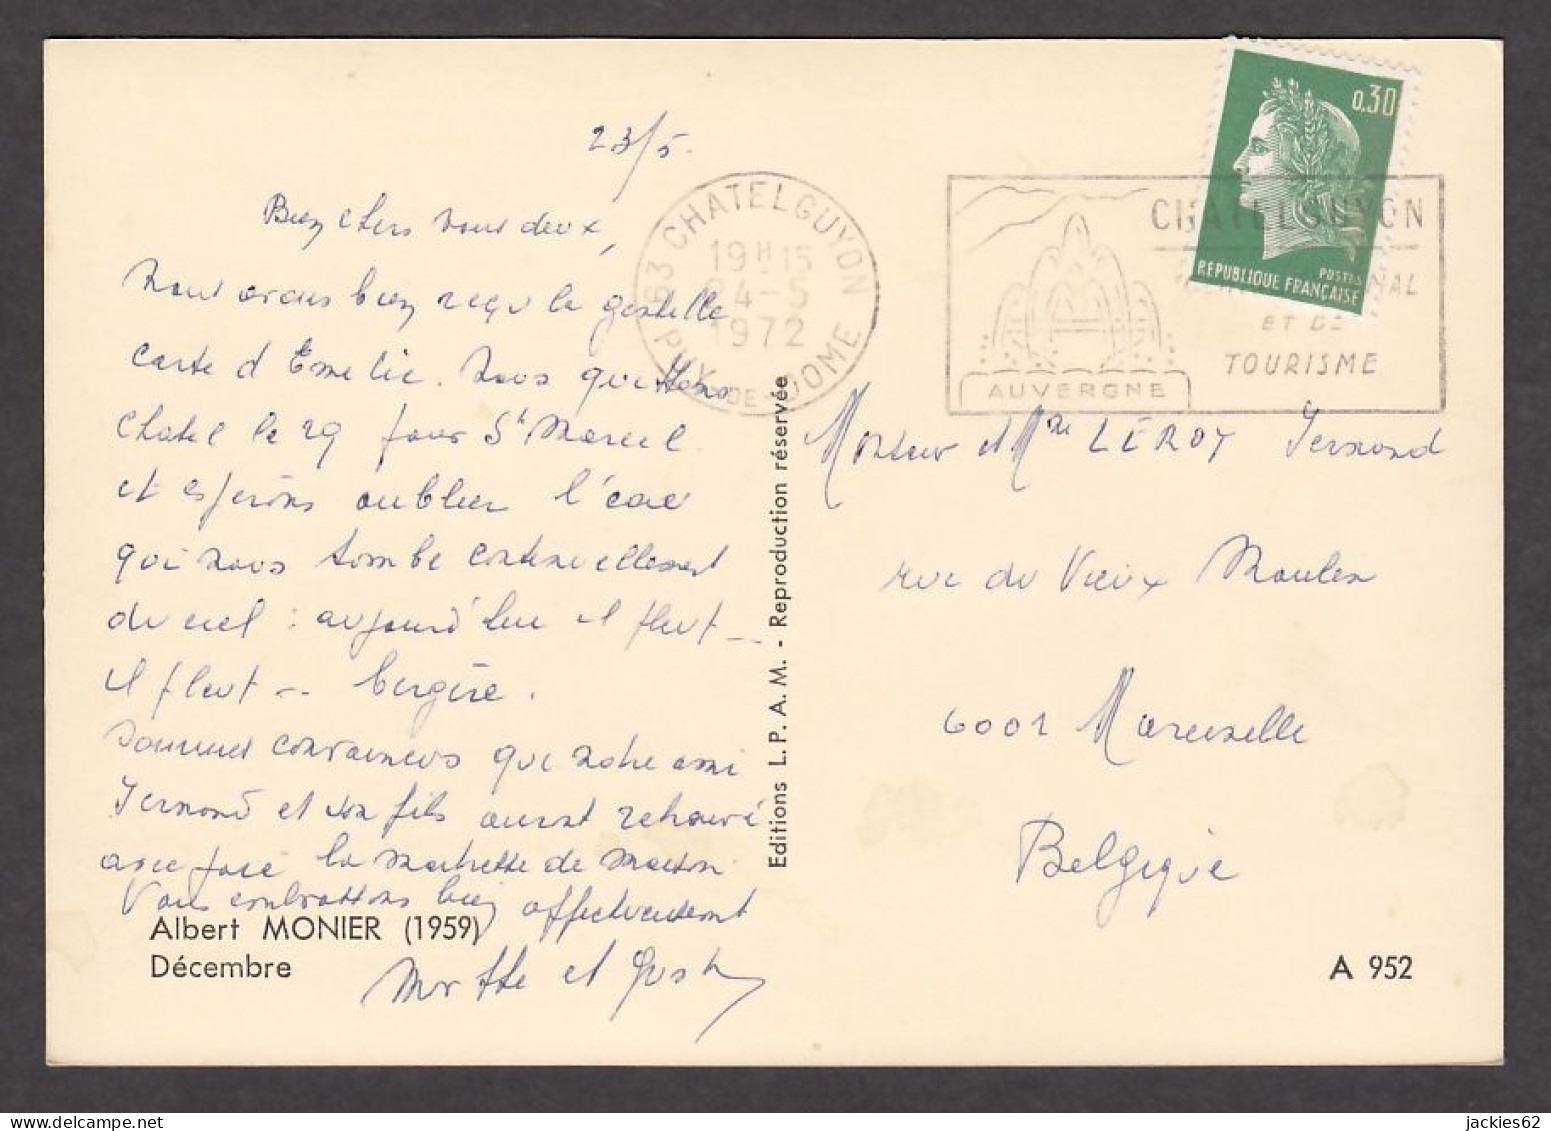 23/5.
Bien chers vous deux,
Nous avons bien reçu la gentille
carte d'Emelie. Nous quittons
Chatel le 29 pour St Marcel
et espérons oublier l'eau
qui nous tombe continuellement
du ciel : aujourd'hui il pleut --
il pleut -- bergère.
Sommes convaincus que notre ami
Fernand et son fils auront retrouvé
avec joie la
de
Vous embrassons bien affectueusement
et
Albert MONIER (1959)
Décembre
Editions L. P. A. M. - Reproduction réservée
63 CHATELGUYON
19H15
24-5
1972
PUY-DE-DOME
CHATELGUYON
ET DE
TOURISME
AUVERGNE
0,30
POSTES
REPUBLIQUE FRANÇAISE
Monsieur et Mme LEROY Fernand
rue du Vieux Moulin
6001 Marcinelle
Belgique
A 952
jackies62